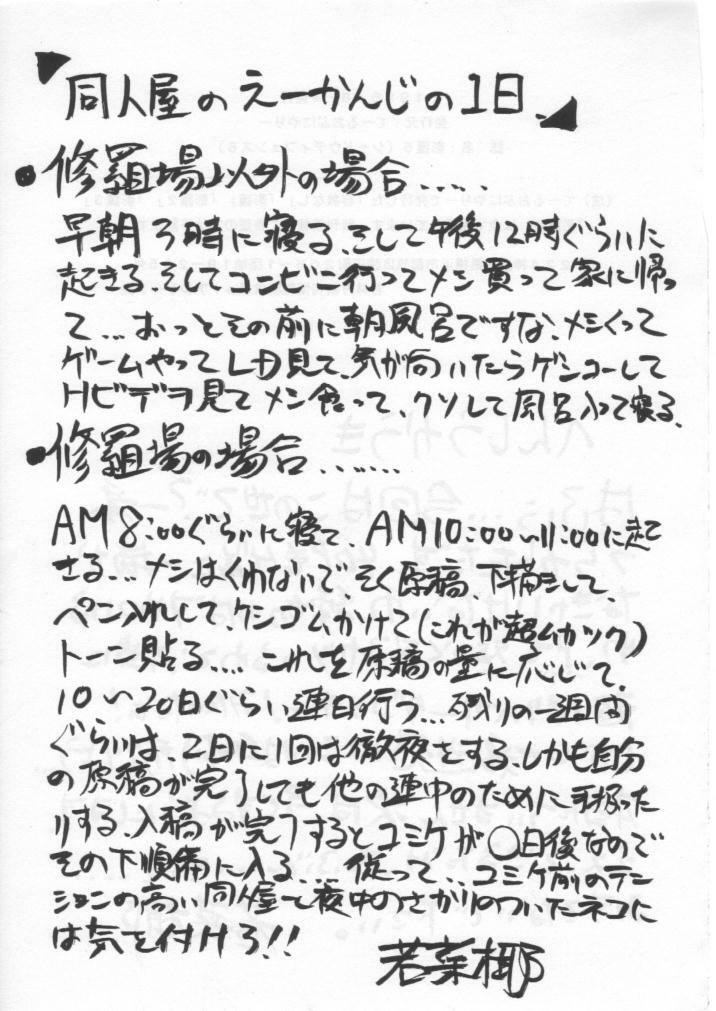 同人屋のえーかんじの1日
・修羅場以外の場合.....
早朝3時に寝る、そして午後12時ぐらいに
起きる、そしてコンビニ行ってメシ買って家に帰っ
て...おっとその前に朝風呂ですな、メシくって
ゲームやってLD見て、気が向いたらゲンコーして
Hビデヲ見てメシ食って、クソして風呂入って寝る、
・修羅場の場合.......
AM8:00ぐらいに寝て、AM10:00〜11:00に起
きる...メシはくわないでそく原稿、下描きして、
ペン入れして、ケシゴムかけて(これが超ムカツク)
トーン貼る.... これを原稿の量に応じて、
10〜20日ぐらい連日行う...残りの一週間
ぐらいは、2日に1回は徹夜をする、しかも自分
の原稿が完了しても他の連中のために手伝った
りする、入稿が完了するとコミケが〇日後なので
その下準備に入る.... 従って...コミケ前のテン
ションの高い同人屋と夜中のさかりのついたネコに
は気を付けろ!!
若菜椰